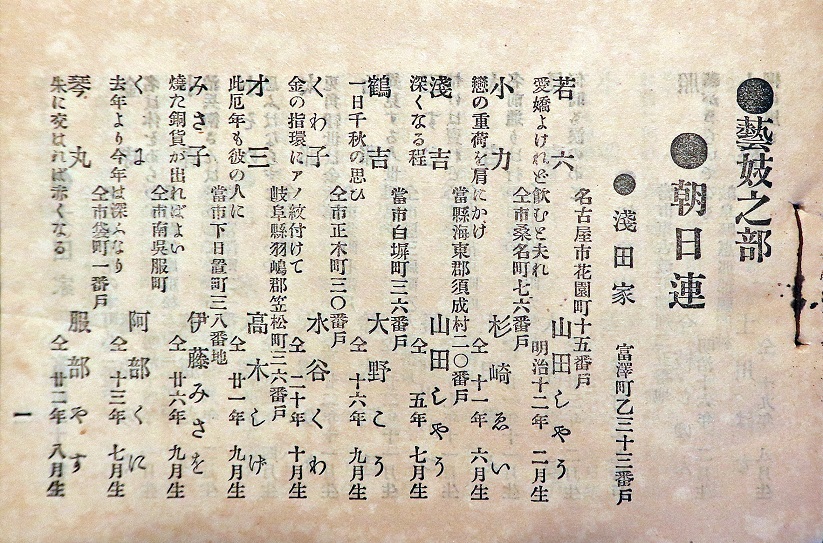 ●藝妓之部
●朝日連
●淺田家　富澤町乙三十三番戸
名古屋市花園町十五番戸
若六　山田しやう
愛嬌よけれど飮むと夫れ　明治十二年　二月生
仝市桑名町七六番戸
小力　杉崎ゑい
戀の重荷を肩にかけ　仝　十一年　六月生
當縣海東郡須成村二〇番戸
淺吉　山田しやう
深くなる程　仝　五年　七月生
當市白塀町三六番戸
鶴吉　大野こう
一日千秋の思ひ　仝　十六年　九月生
仝市正木町三〇番戸
くわ子　水谷くわ
金の指環にアノ紋付けて　仝　二十年　十月生
岐阜縣羽嶋郡笠松町三六番戸
才三　高木しげ
此厄年も彼の人に　仝　廿一年　九月生
當市下日置町三八番地
みさ子　伊藤みさを
燒た銅貨が出ればよい　仝　廿六年　九月生
仝市南呉服町
くは　阿部くに
去年より今年は深ふなり　仝　十三年　七月生
仝市袋町一番戸
琴丸　服部やす
朱に交はれば赤くなる　仝　廿二年　八月生
一